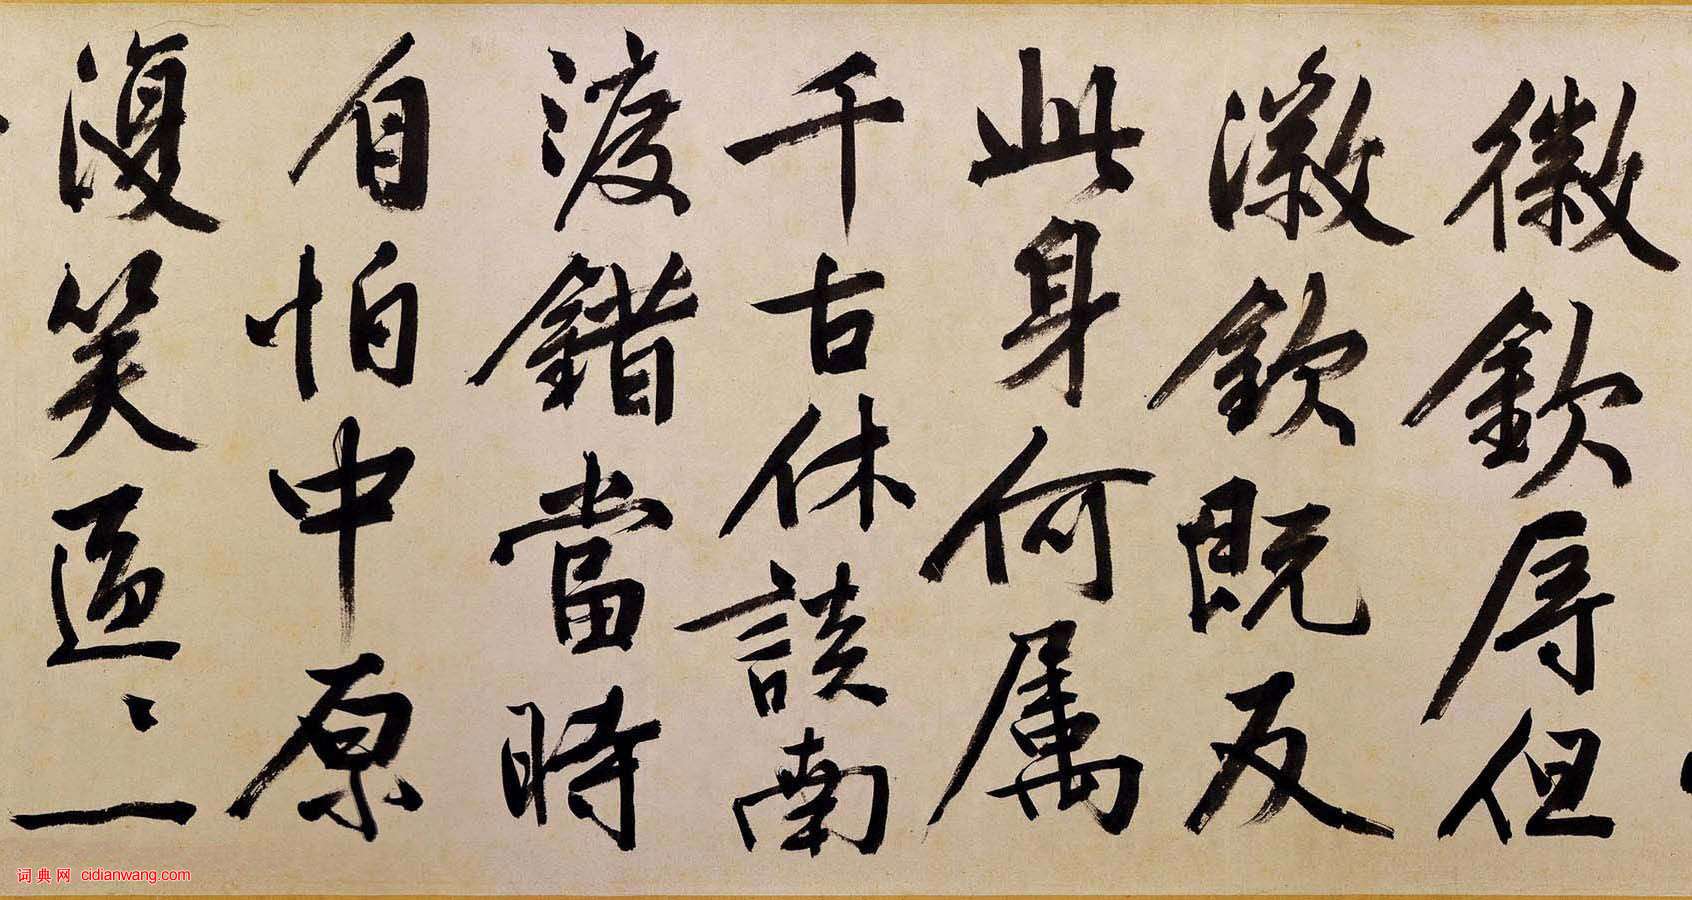 徽欽辱但
徽欽既反
此身何属
千古休談南
渡錯當時
自怕中原
復笑區〻
一
词典网 cidianwang.com